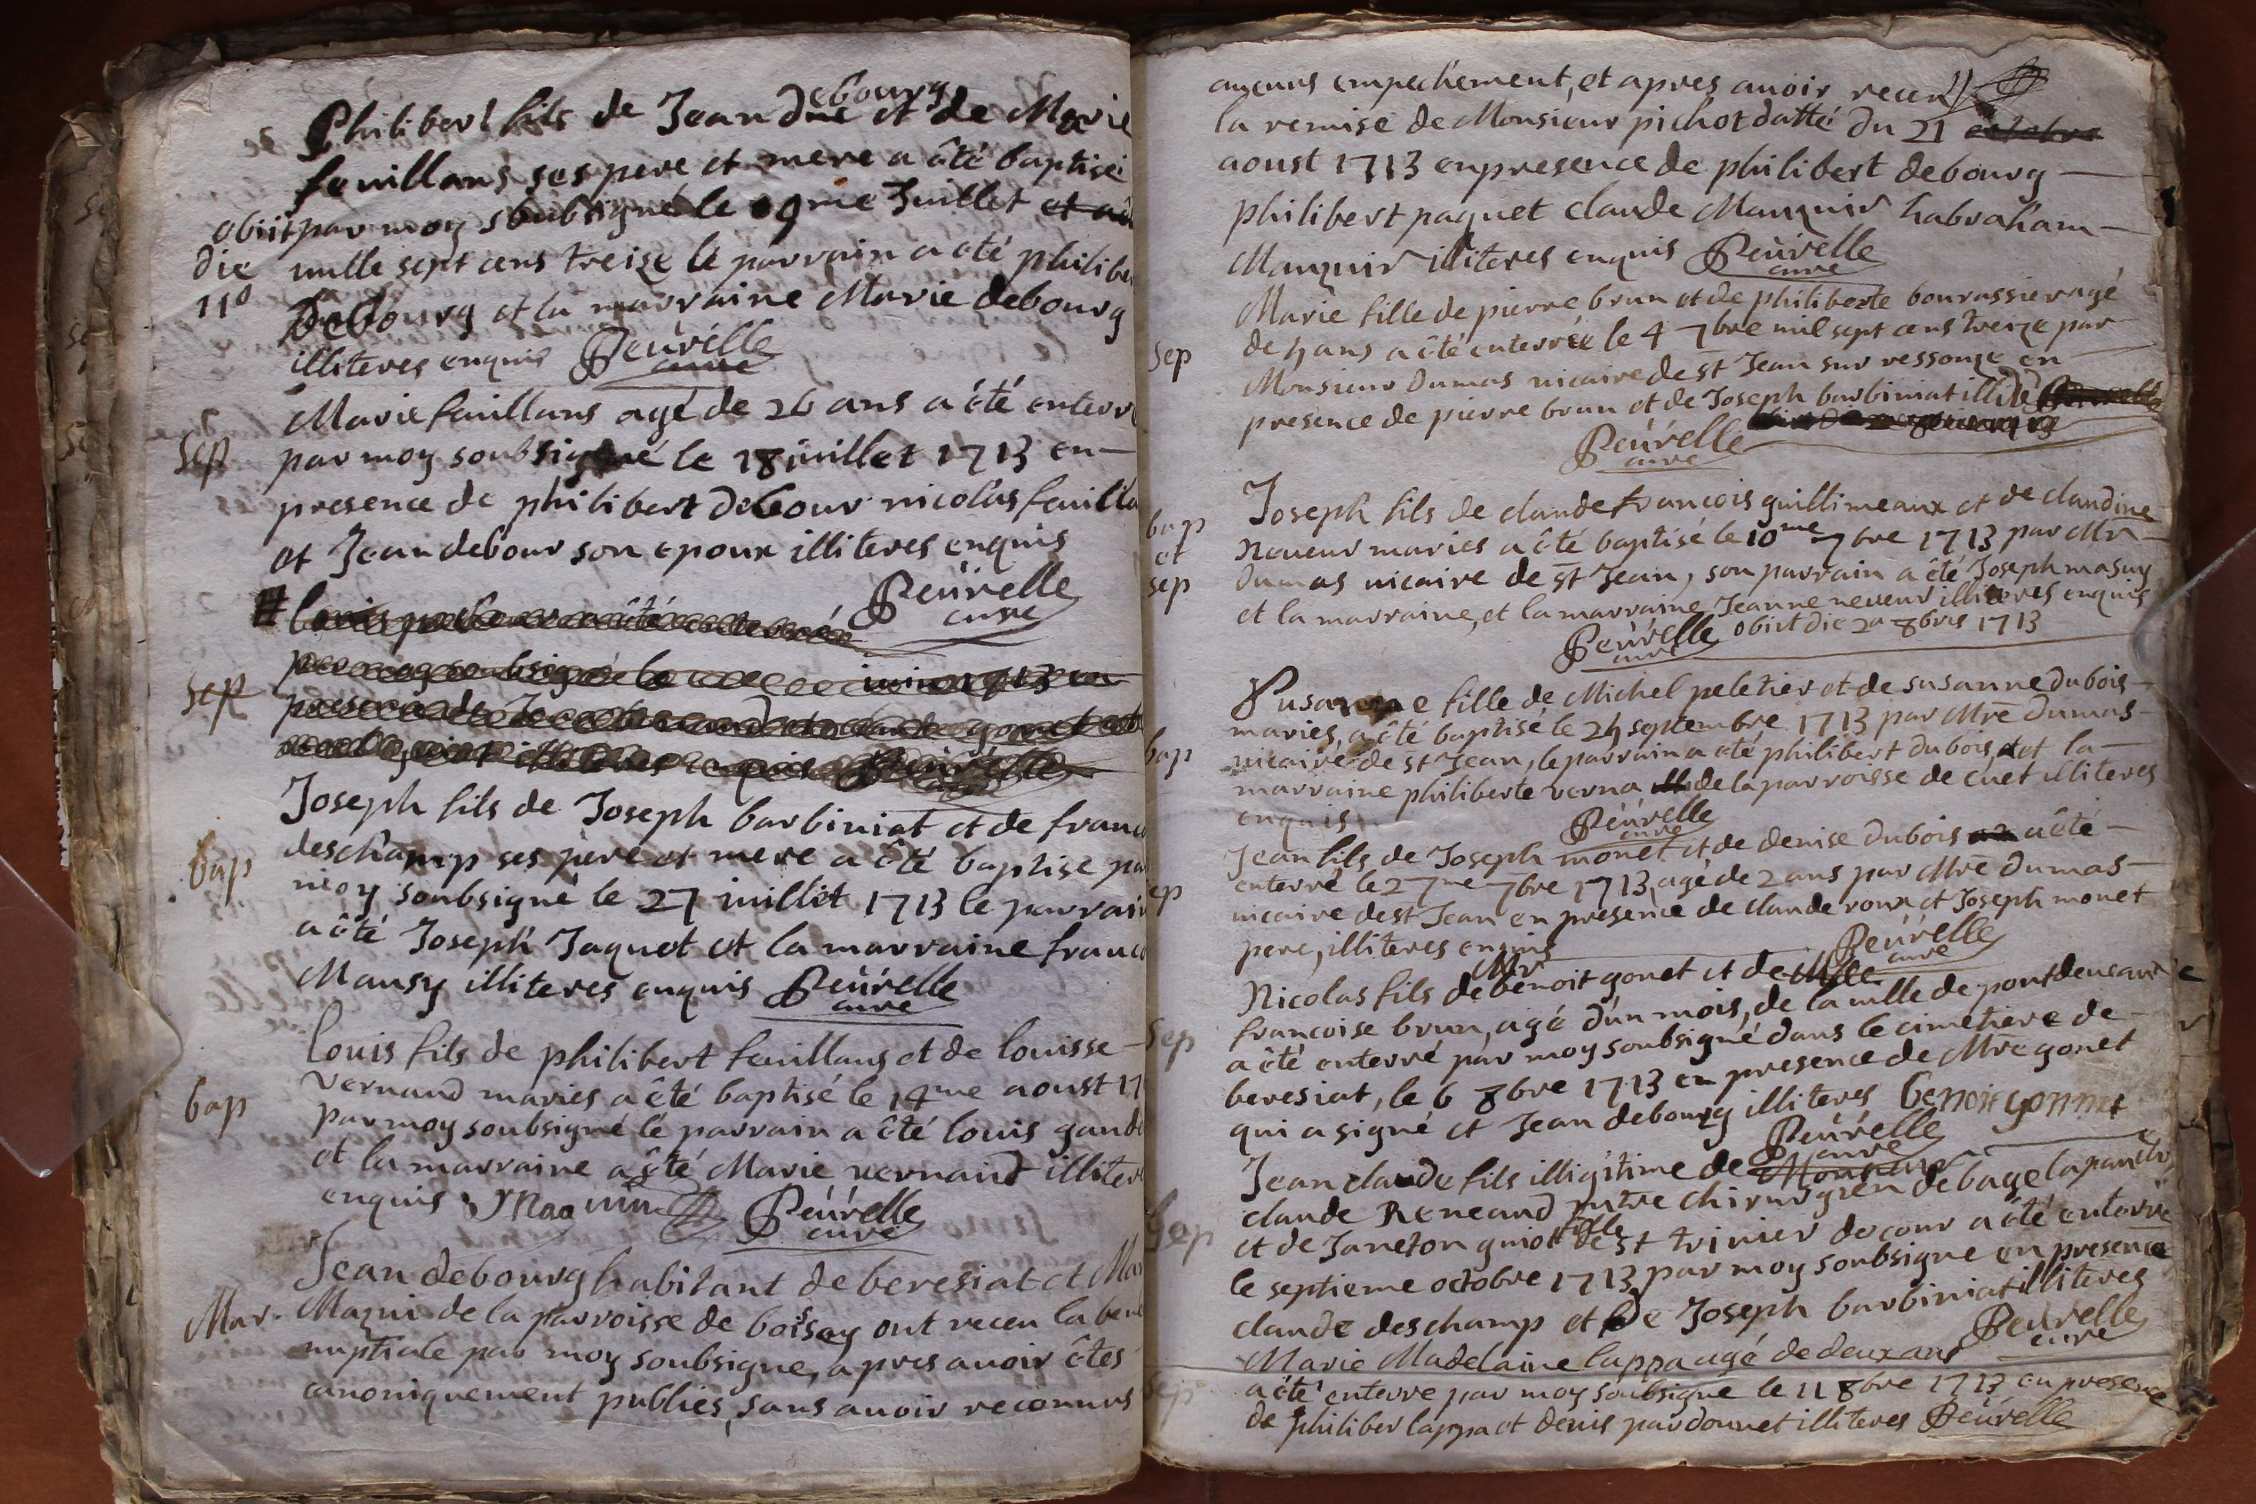 Philibert fils de Jean Debourg et de Marie
feuillans ses pere et mere a été baptisé
obiit par moy soubsigné le 9me Juillet
die mille sept cens treize le parrain a oté philibe
11a Debourg et la marraine Marie debourg
illiteres enquis Peúrelle
curé
Marie feuillans agé de 26 ans a été enterré
Sep par moy soubsigné le 18 juillet 1713 en
presence de philibert debour nicolas feuilla
et Jean debour son epoux illiteres enquis
Peúrelle
curé
Sep
Joseph fils de Joseph barbiniat et de franc
bap deschamp ses pere et mere a été baptisé par
moy soubsigné le 27 juillet 1713 le parrain
a été Joseph Jaquet et la marraine franc
Mansy illiteres enquis Peúrelle
curé
Louis fils de philibert feuillans et de louisse
bap vernand maries a été baptisé le 14me aoust 17
par moy soubsigné le parrain a été louis gand
et la marraine a été Marie vernand illiter
enquis Peúrelle
curé
Jean debourg habitant de beresiat et Mar
Mar. de la parroisse de boissey ont receu la bene
nuptiale par moy soubsigné, apres avoir êtes
canoniquement publiés, sans avoir reconnus
aucuns empechement, et apres avoir receu
la remise de Monsieur pichot datté du 21 octobre
aoust 1713 en presence de philibert debourg
philibert paquet claude Mauguir habraham
Mauguir illiteres enquis Peúrelle
curé
Marie fille de pierre brun et de philiberte bourassier agé
Sep de 5 ans a été enterrée le 4 7bre mil sept cens treize par
Monsieur Dumas vicaire de st Jean sur ressouze en
presence de pierre brun et de Joseph barbiniat
Peúrelle
curé
Joseph fils de claude francois guillimeaux et de claudine
bap et sep neveur maries a été baptisé le 10me 7bre 1713 par Mr
Dumas vicaire de st Jean, son parrain a été Joseph masuy
et la marraine, et la marraine Jeanne neveur illiteres enquis
Peúrelle obiit die 2a 8bris 1713
curé
Susanne fille de Michel peletier et de susanne dubois
maries, a été baptisé le 25 septembre 1713 par Mre Dumas
bap vicaire de st Jean, le parrain a oté philibert dubois, et la
marraine philiberte verna de la parroisse de cuet illiteres
enquis Peúrelle
curé
Jean fils de Joseph monet et de denise dubois a été
sep enterré le 27me 7bre 1713, agé de 2 ans par Mre Dumas
vicaire de st Jean en presence de claude roux et Joseph monet
pere, illiteres enquis Peúrelle
curé
Nicolas fils de Mr benoit gonet et de Mlle
francoise brun, agé d'un mois, de la ville de pontdevaux
Sep a été enterré par moy soubsigné dans le cimetiere de
beresiat, le 6 8bre 1713 en presence de Mre gonet
qui a signé et Jean debourg illiteres benoit gonnet
Peúrelle
curé
Jean claude fils illigitime de
claude Reneaud mtre chirurgien de bage
Sep et de Janeton guiot fille de st trivier de cour a été enterré
le septieme octobre 1713 par moy soubsigné en presence
claude deschamp et de Joseph barbiniat illiteres
Peurelle
curé
Marie Madelaine lappa agé de deux ans
sep a été enterré par moy soubsigné le 11 8bre 1713 en presence
de philiber lappa et denis pardonnet illiteres Peúrelle